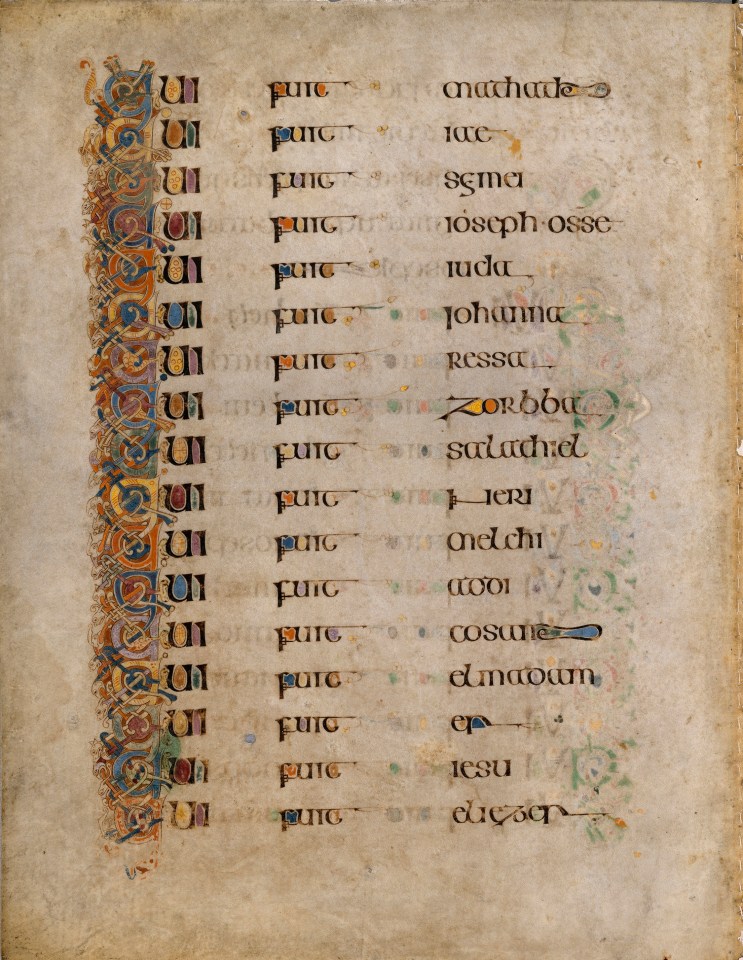 Qui fuit mathath
Qui fuit iae
Qui fuit semei
Qui fuit ioseph·osse
Qui fuit iuda
Qui fuit iohanna
Qui fuit ressa
Qui fuit zorbba
Qui fuit salathiel
Qui fuit neri
Qui fuit melchi
Qui fuit addi
Qui fuit cosam
Qui fuit elmadam
Qui fuit er
Qui fuit iesu
Qui fuit eliezer